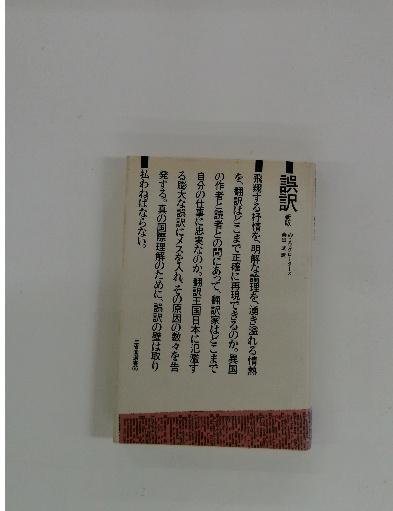 誤訳
新版
W・A・グロータース
柴田 武 訳
飛翔する抒情を、明解な論理を、湧き溢れる情熱
を、翻訳はどこまで正確に再現できるのか。異国
の作者と読者との間にあって、翻訳家はどこまで
自分の仕事に忠実なのか。翻訳王国日本に氾濫す
る膨大な誤訳にメスを入れ、その原因の数々を告
発する。真の国際理解のために、誤訳の壁は取り
払わねばならない。